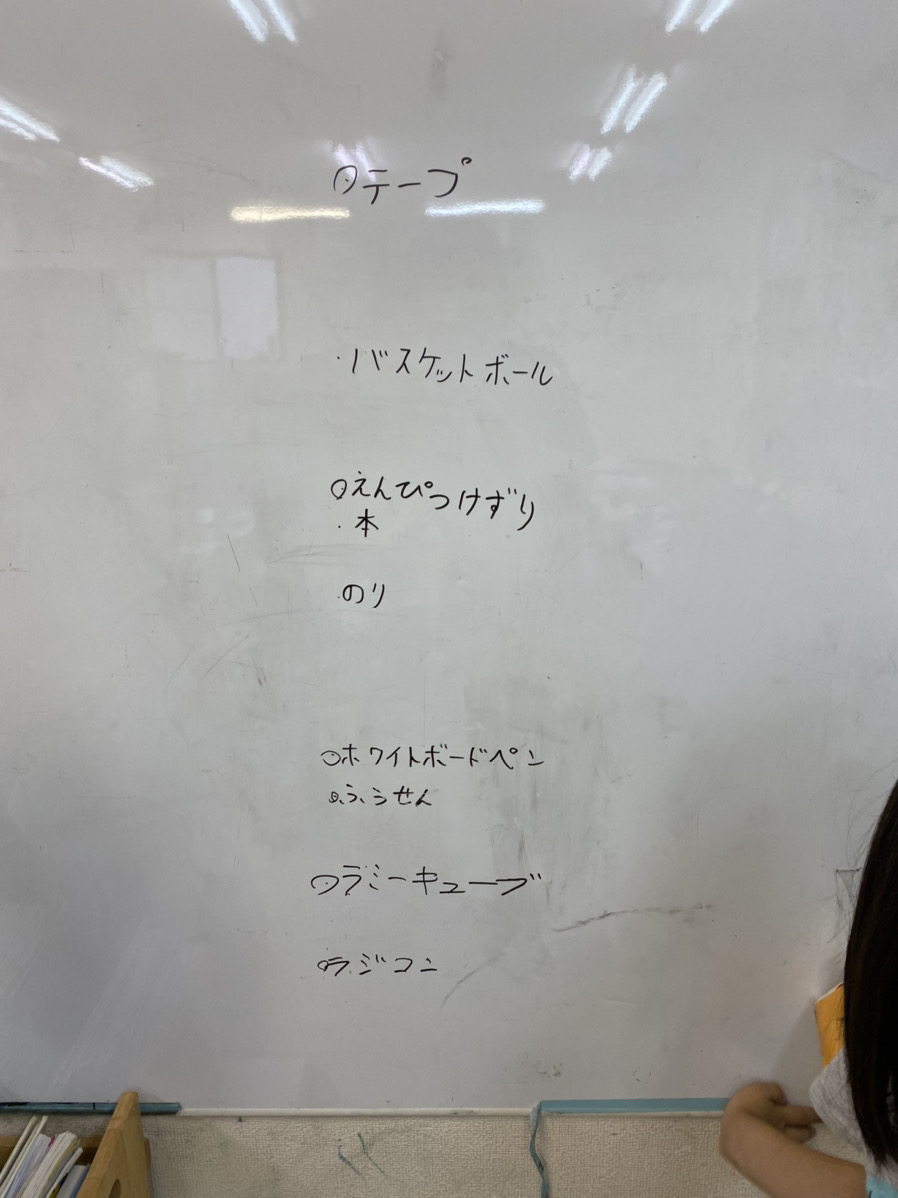 ・テープ
・バスケットボール
・えんぴつけずり
・本
・のり
・ホワイトボードペン
・ふうせん
・ラミーキューブ
・ラジコン